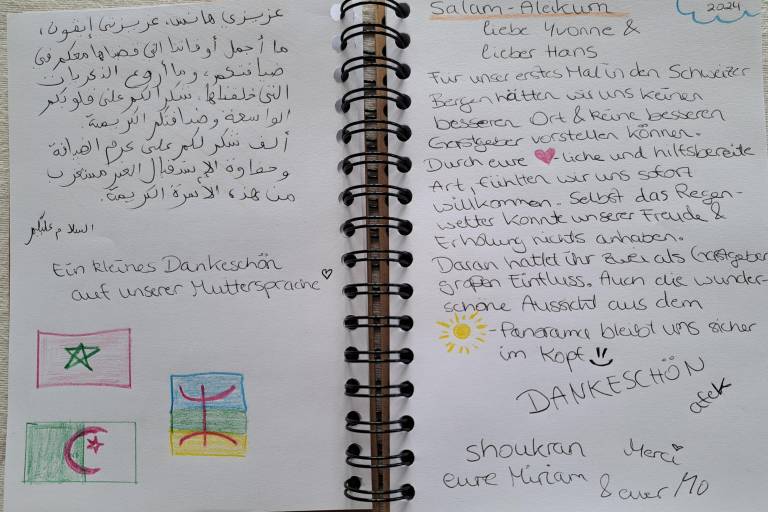 عزيزي هانس، عزيزتي إيفون،
ما أجمل أوقاتنا التي قضيناها معكم في
ضيافتكم، وما أروع الذكريات
التي خلفناها. شكرا لكم على قلوبكم
الواسعة وضيافتكم الكريمة.
ألف شكر لكم على كرم الضيافة
وحفاوة الإستقبال الغير مستغرب
من هذه الأسرة الكريمة.
السلام عليكم
Ein kleines Dankeschön
auf unserer Muttersprache
Salam-Aleikum
2024
liebe Yvonne &
lieber Hans
Für unser erstes Mal in den Schweizer
Bergen hätten wir uns keinen
besseren Ort & keine besseren
Gastgeber vorstellen können.
Durch eure ❤-liche und hilfsbereite
Art, fühlten wir uns sofort
willkommen. Selbst das Regen-
wetter konnte unserer Freude &
Erholung nichts anhaben.
Daran hattet ihr zwei als Gastgeber
großen Einfluss. Auch die wunder-
schöne Aussicht aus dem
☀-Panorama bleibt uns sicher
im Kopf
DANKESCHÖN
shoukran Merci
eure Miriam & euer Mo